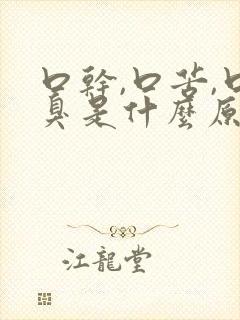 口幹,口苦,口
臭是什麼原
江龍堂